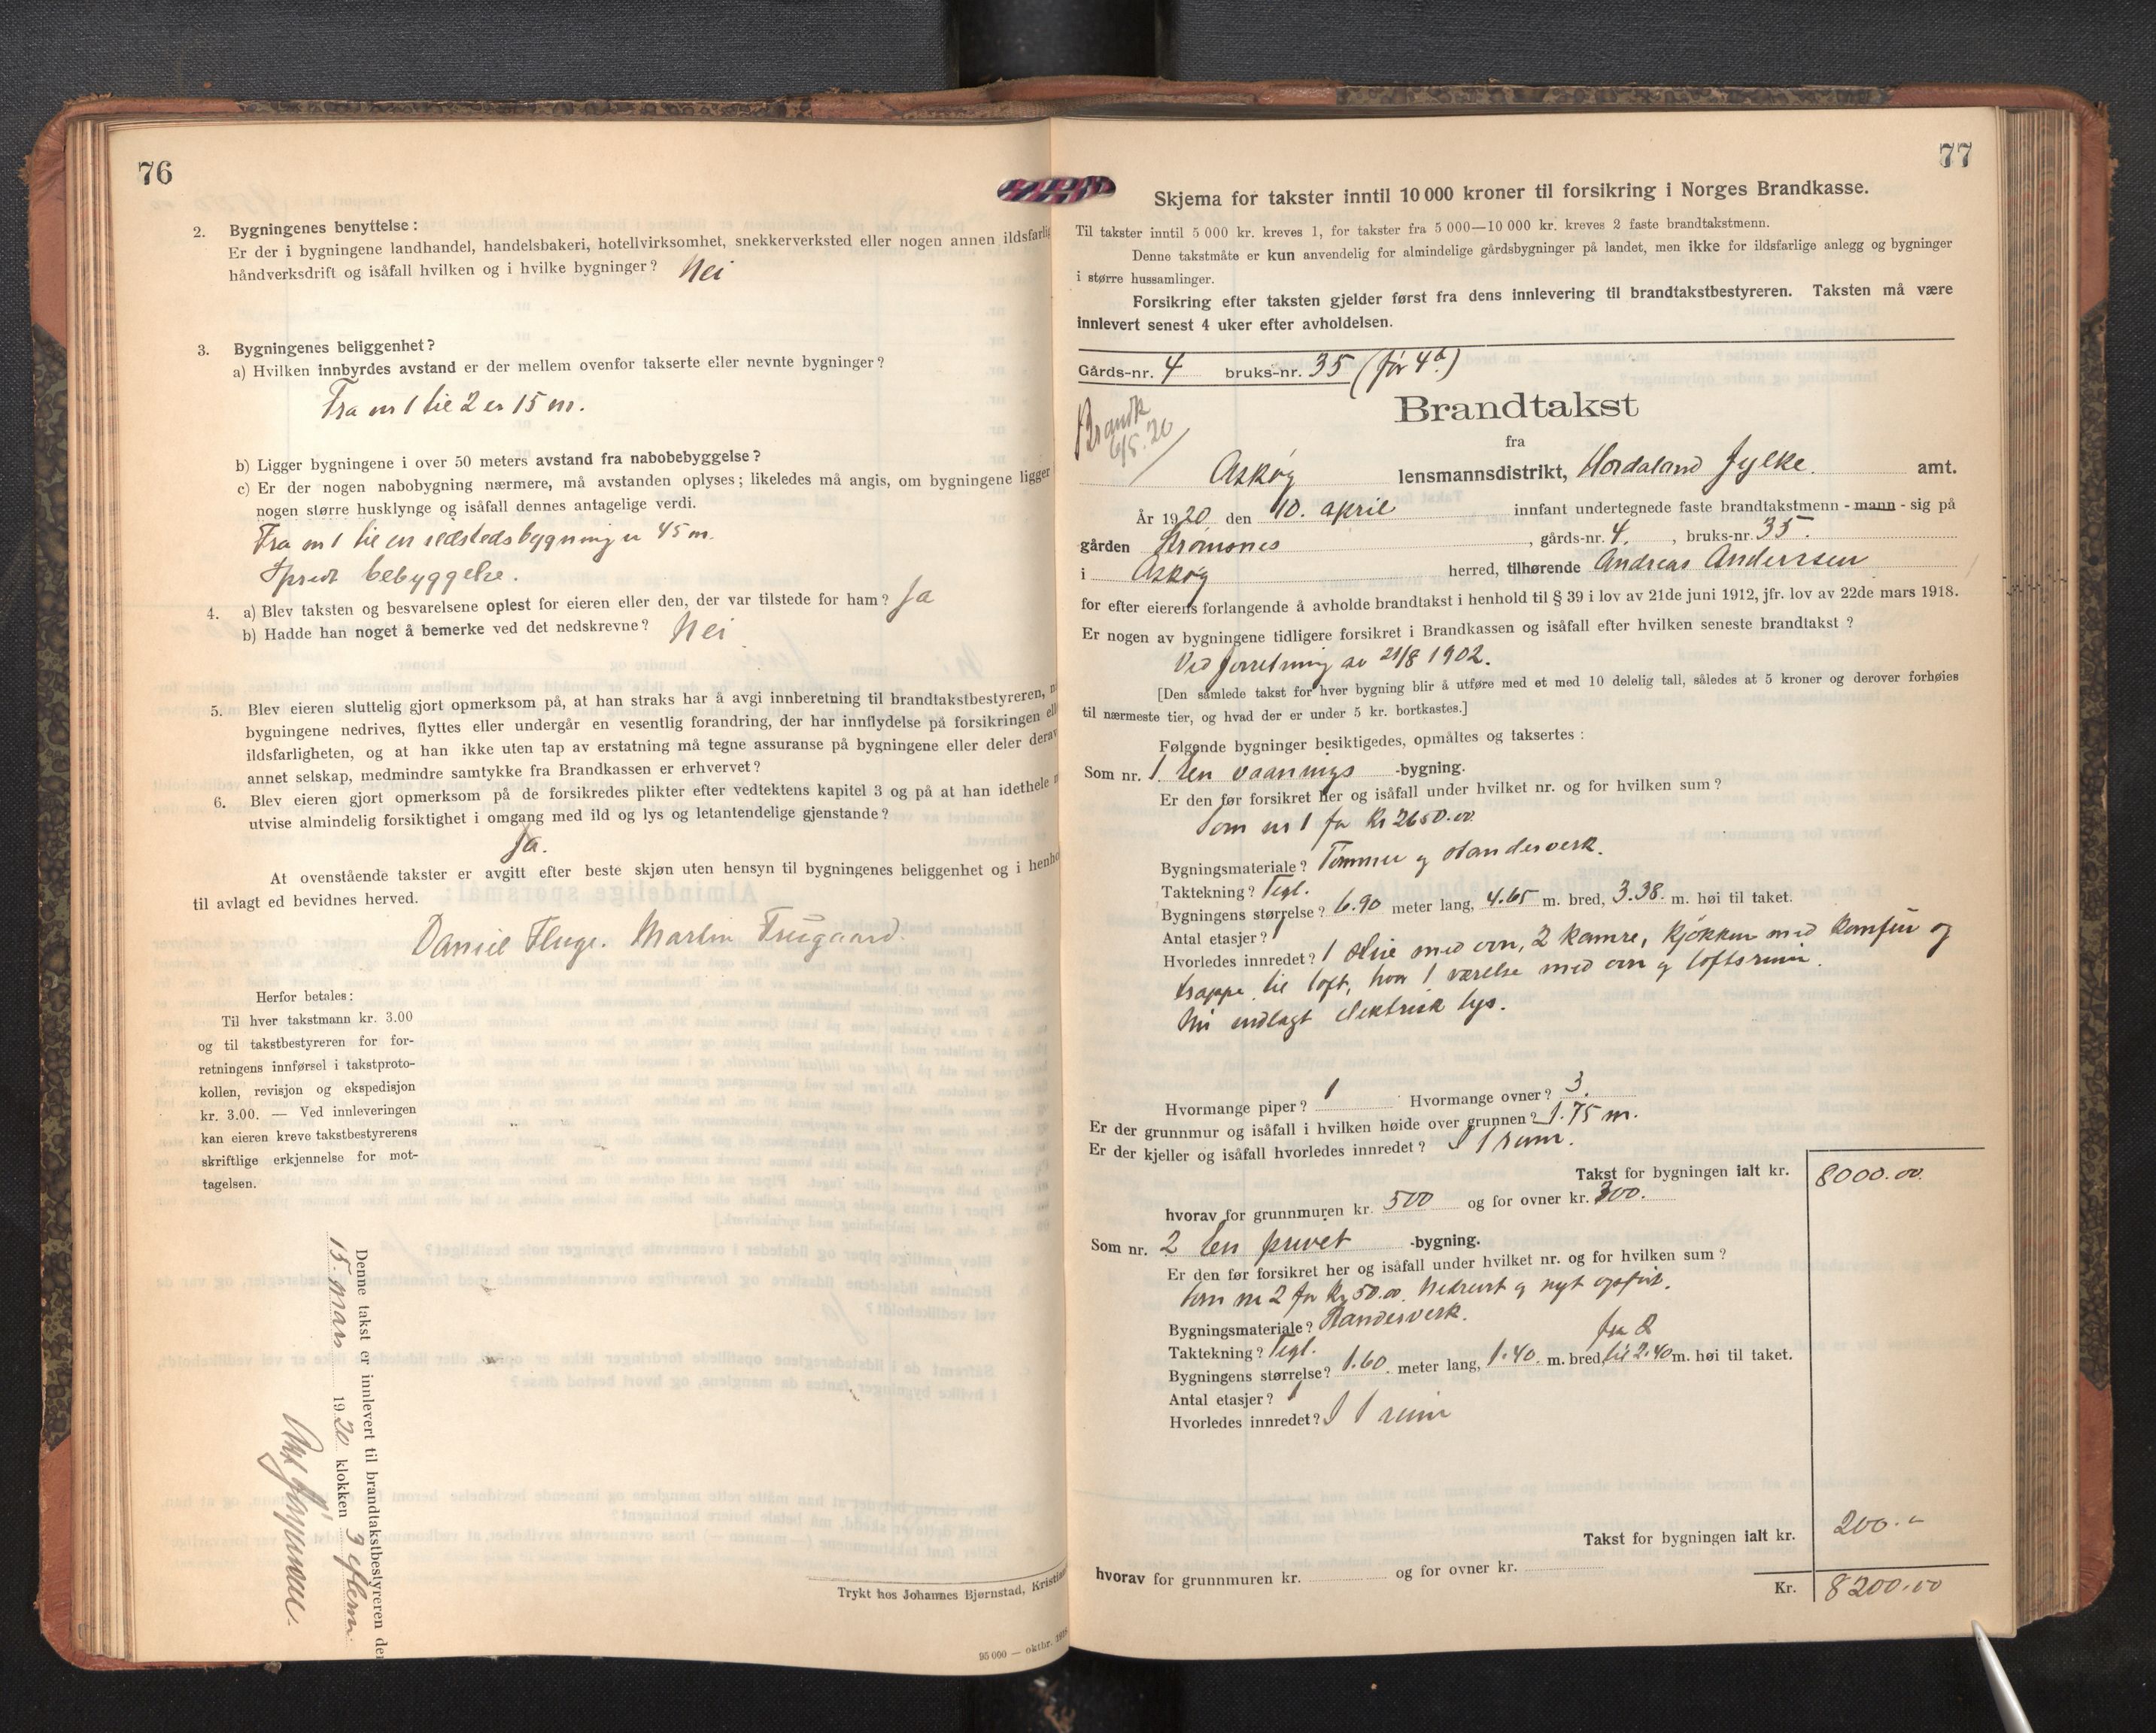 76
2. Bygningenes benyttelse :
Er der i bygningene landhandel, handelsbakeri, hotellvirksomhet, snekkerverksted eller nogen annen ildsfarlig
håndverksdrift og isåfall hvilken og i hvilke bygninger? Nei
3. Bygningenes beliggenhet?
a) Hvilken innbyrdes avstand er der mellem ovenfor takserte eller nevnte bygninger?
Fra nr 1 til 2 er 15 m.
b) Ligger bygningene i over 50 meters avstand fra nabobebyggelse?
c) Er der nogen nabobygning nærmere, må avstanden oplyses; likeledes må angis, om bygningene ligger
nogen større husklynge og isåfall dennes antagelige verdi.
Fra nr 1 til en ildstedsbygning er 45 m.
Spredt bebyggelse.
4. a) Blev taksten og besvarelsene oplest for eieren eller den, der var tilstede for ham? Ja
b) Hadde han noget å bemerke ved det nedskrevne? Nei
5. Blev eieren sluttelig gjort opmerksom på, at han straks har å avgi innberetning til brandtakstbestyreren,
bygningene nedrives, flyttes eller undergår en vesentlig forandring, der har innflydelse på forsikringen
ildsfarligheten, og at han ikke uten tap av erstatning må tegne assuranse på bygningene eller deler derav
annet selskap, medmindre samtykke fra Brandkassen er erhvervet?
6. Blev eieren gjort opmerksom på de forsikredes plikter efter vedtektens kapitel 3 og på at han idethele
utvise almindelig forsiktighet i omgang med ild og lys og letantendelige gjenstande?
Ja.
At ovenstående takster er avgitt efter beste skjøn uten hensyn til bygningenes beliggenhet og i henho
til avlagt ed bevidnes herved.
Daniel Fluge. Martin
Herfor betales:
Til hver takstmann kr. 3.00
og til takstbestyreren for for-
retningens innførsel i takstproto-
kollen, revisjon og ekspedisjon
kr. 3.00. — Ved innleveringen
kan eieren kreve takstbestyrerens
skriftlige erkjennelse for mot-
tagelsen.
Denne takst er innlevert til brandtakstbestyreren den
15. mars 1920 klokken 3 eftern.
Trykt hos Johannes Bjørnstad, Kristia
95 000 — oktbr. 1918
77
Skjema for takster inntil 10 000 kroner til forsikring i Norges Brandkasse.
Til takster inntil 5 000 kr. kreves 1, for takster fra 5 000—10 000 kr. kreves 2 faste brandtakstmenn.
Denne takstmåte er kun anvendelig for almindelige gårdsbygninger på landet, men ikke for ildsfarlige anlegg og bygninger
i større hussamlinger.
Forsikring efter taksten gjelder først fra dens innlevering til brandtakstbestyreren. Taksten må være
innlevert senest 4 uker efter avholdelsen.
Gårds-nr. 4 bruks-nr. 35 (før 4b)
Brandk
6/5. 20
Brandtakst
fra
Askøy lensmannsdistrikt, Hordaland fylke. amt.
År 1920 den 10. april innfant undertegnede faste brandtakstmenn - mann - sig på
gården Strømsnes, gårds-nr. 4., bruks-nr. 35.
i Askøy herred, tilhørende Andreas Anderssen
for efter eierens forlangende å avholde brandtakst i henhold til § 39 i lov av 21de juni 1912, jfr. lov av 22de mars 1918.
Er nogen av bygningene tidligere forsikret i Brandkassen og isåfall efter hvilken seneste brandtakst ?
Ved forretning av 21/8 1902.
[Den samlede takst for hver bygning blir å utføre med et med 10 delelig tall, således at 5 kroner og derover forhøies
til nærmeste tier, og hvad der er under 5 kr. bortkastes.]
Følgende bygninger besiktigedes, opmåltes og taksertes :
Som nr. 1. En vaanings -bygning.
Er den før forsikret her og isåfall under hvilket nr. og for hvilken sum ?
Som nr 1 for Kr 2650.00
Bygningsmateriale? Tømmer og standerverk.
Taktekning? Tegl.
Bygningens størrelse? 6.90 meter lang, 4.65 m. bred, 3.38. m. høi til taket.
Antal etasjer? 1
Hvorledes innredet? 1 stue med ovn, 2 kamre, kjøkken med komfur og
trappe til loft, hvor 1 værelse med ovn og loftsrum.
Nu indlagt elektrisk lys.
Hvormange piper? 1 Hvormange ovner? 3.
Er der grunnmur og isåfall i hvilken høide over grunnen? 1.75 m.
Er der kjeller og isåfall hvorledes innredet? I 1 rum.
Takst for bygningen ialt kr. 8000.00.
hvorav for grunnmuren kr. 500 og for ovner kr. 300.
Som nr. 2 En privet -bygning.
Er den før forsikret her og isåfall under hvilket nr. og for hvilken sum ?
Som nr 2 for Kr 50.00. Nedrevet og nyt opført.
Bygningsmateriale? Standerverk.
Taktekning? Tegl.
fra 2
Bygningens størrelse? 1.60. meter lang, 1.40. m. bred, til 2.40 m. høi til taket.
Antal etasjer? 1
Hvorledes innredet? I 1 rum
Takst for bygningen ialt kr. 200.-
hvorav for grunnmuren kr. og for ovner kr.
Kr. 8200.00